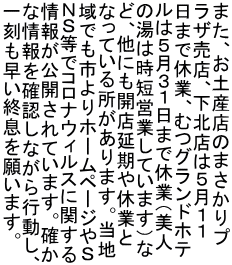 また、お土産店のまさかりプ
ラザ売店、下北店は５月１１
日まで休業、むつグランドホテ
ルは５月３１日まで休業（美人
の湯は時短営業しています）な
ど、他にも開店延期や休業と
なっている所があります。当地
域でも市よりホームページやＳ
ＮＳ等でコロナウィルスに関する
情報が公開されています。確か
な情報を確認しながら行動し、
一刻も早い終息を願います。